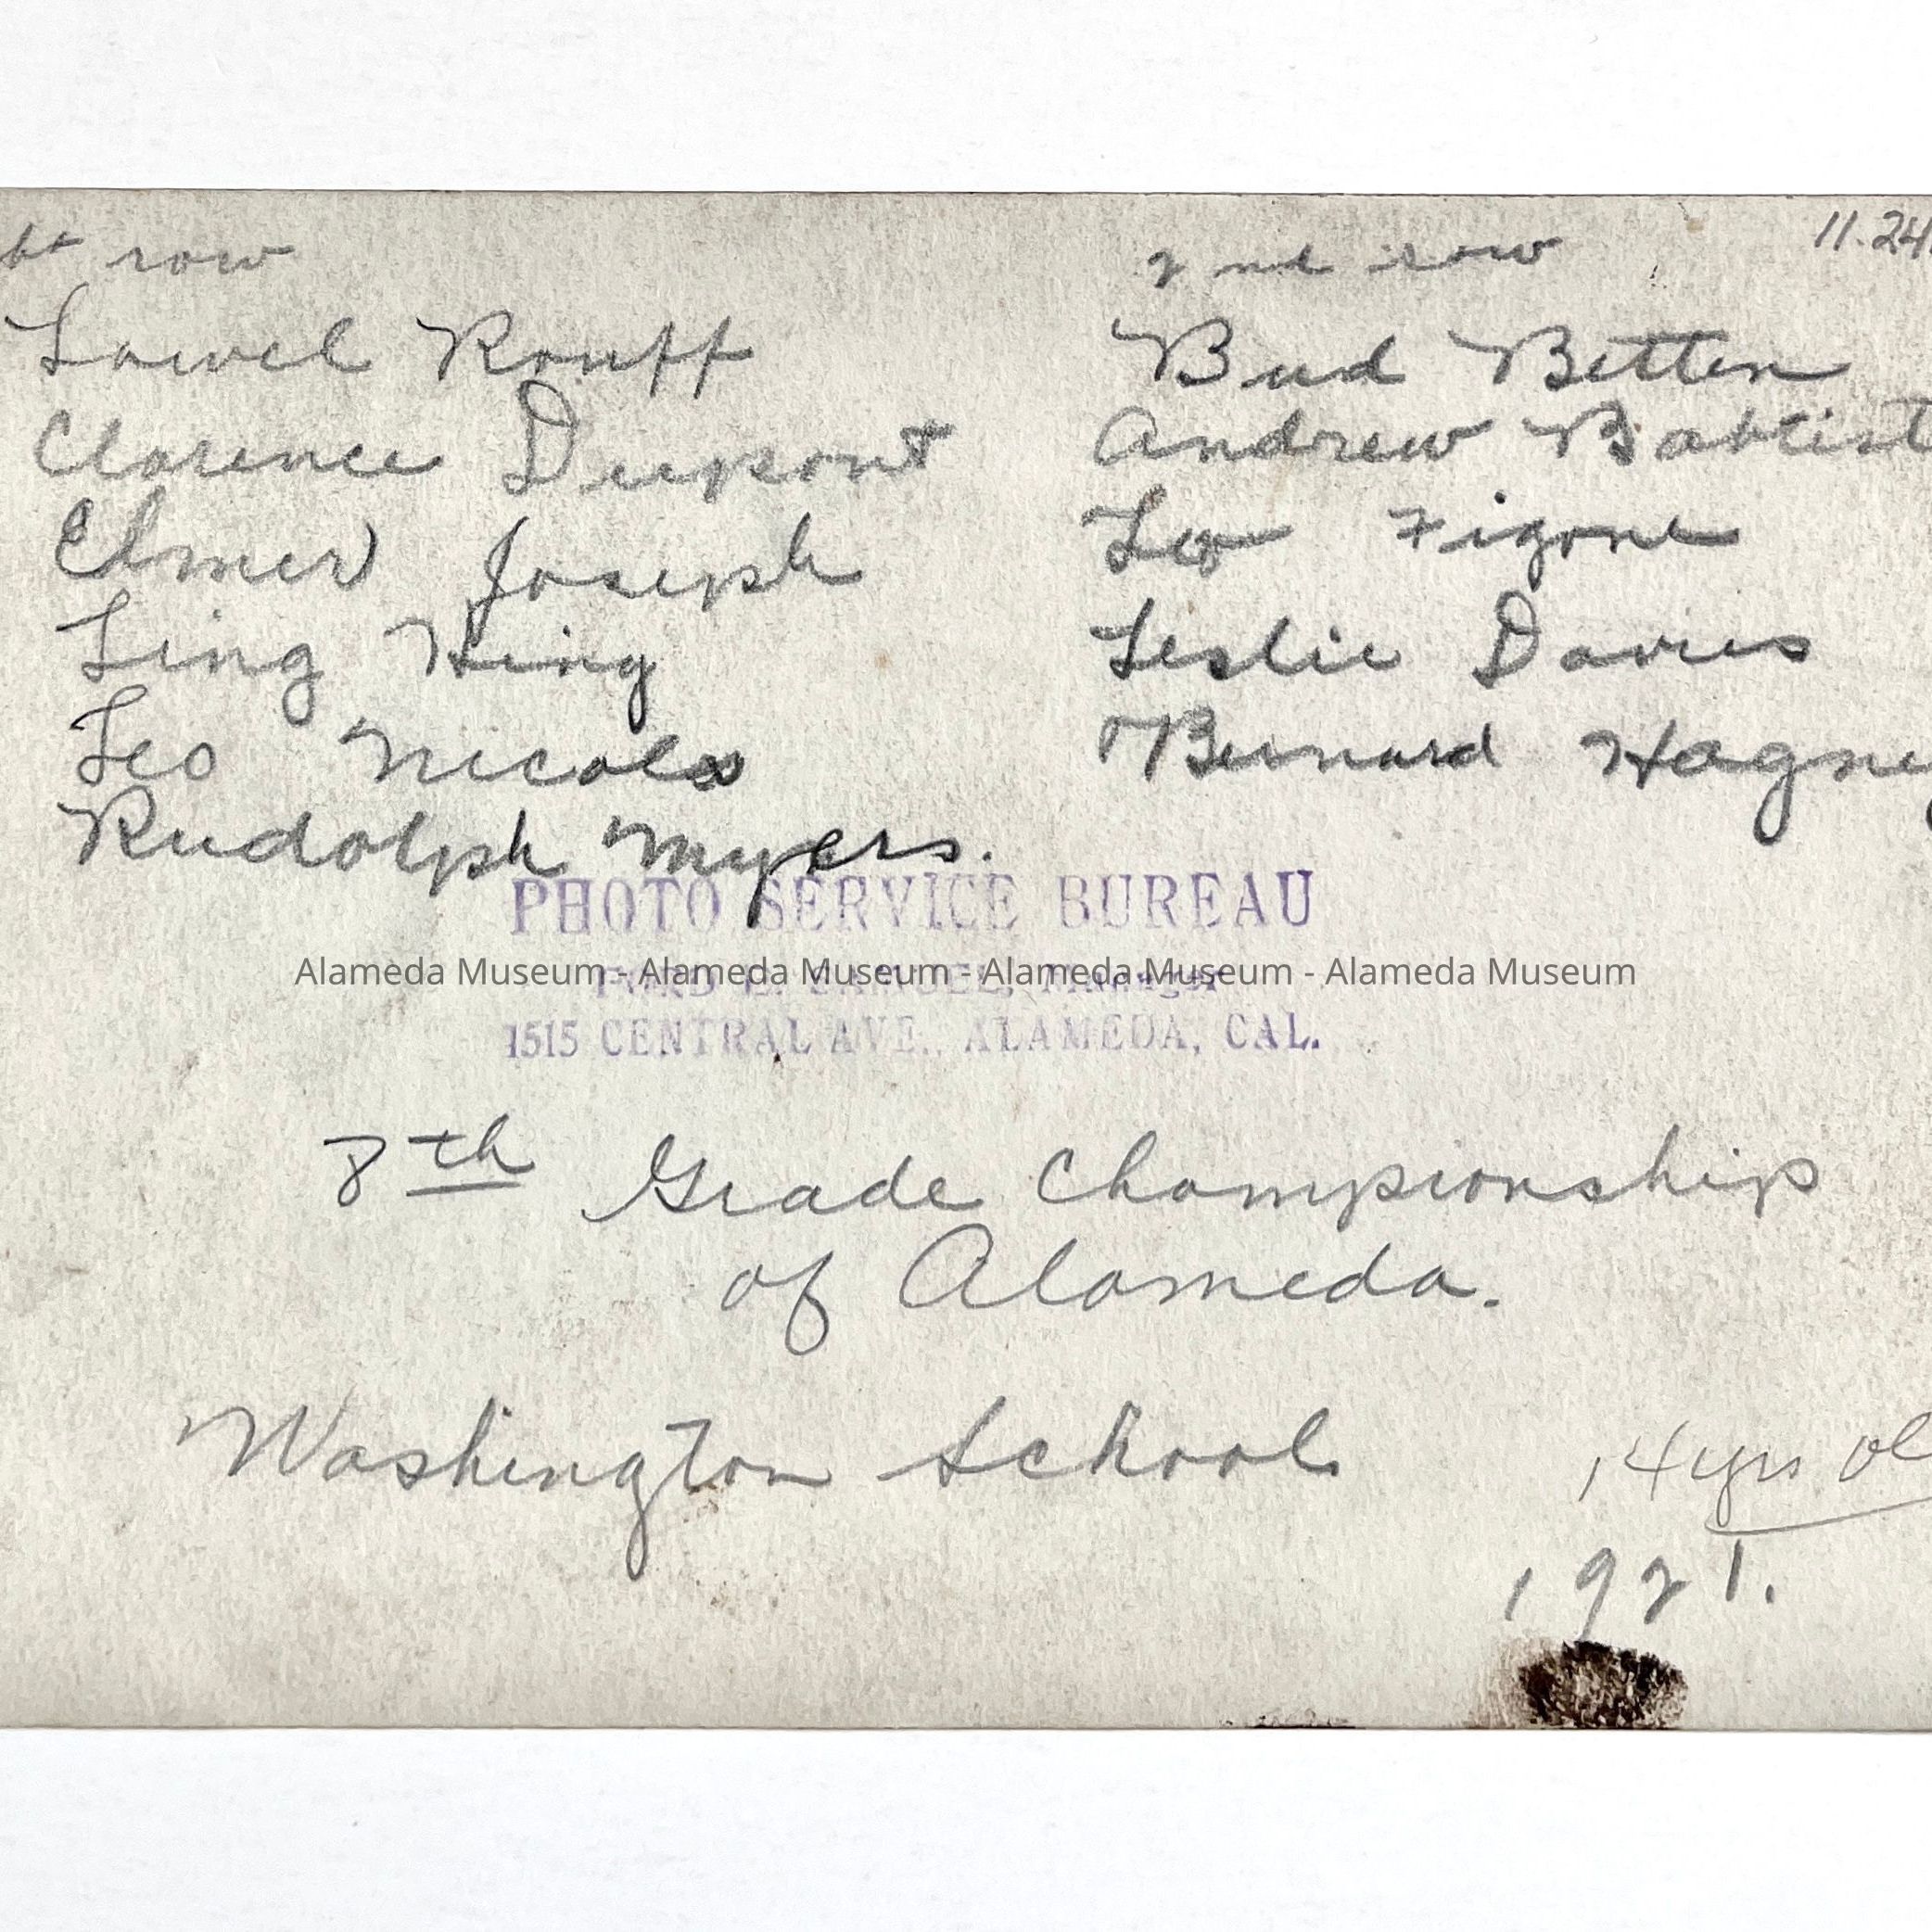 bt row
Lowel Rouff
Clarence Dupont
Elmer Joseph
Ling King
Leo Nicols
Rudolph Myers.
2nd row
11.24
Bud Betten
Andrew Babtist
Leo Figone
Leslie Davies
Bernard Hagne
PHOTO SERVICE BUREAU
Alameda Museum - Alameda Museum - Alameda Museum - Alameda Museum
1515 CENTRAL AVE., ALAMEDA, CAL.
8th Grade Championship
of Alameda.
Washington School
14 yrs ol
1921.